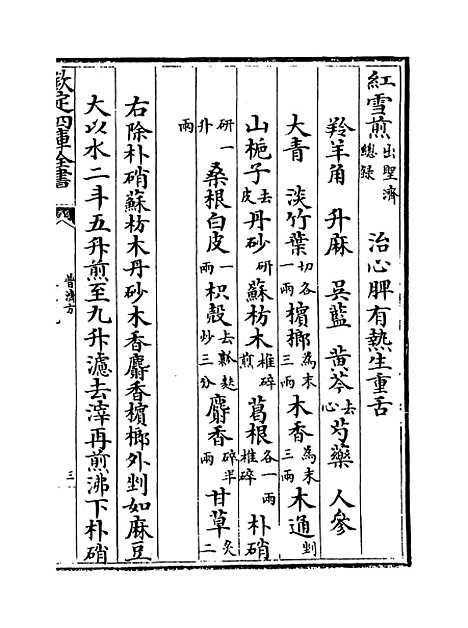 紅雪煎出聖濟總錄 治心脾有熱生重舌
羚羊角 升麻 吳藍 黄芩去心芍藥 人參
大青 淡竹葉切各一兩檳榔為末三兩木香為末三兩木通剉
山梔子去皮丹砂研蘇枋木椎碎煎葛根各一兩椎碎朴硝
研一升兩桑根白皮一兩枳殼去瓤麩炒三分麝香碎半兩甘草炙二
右除朴硝蘇枋木丹砂木香麝香檳榔外剉如麻豆
大以水二斗五升煎至九升濾去滓再煎沸下朴硝
欽定四庫全書
普濟方
三